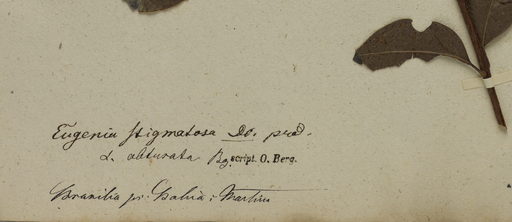 Eugenia stigmatosa DC. prod.
α. obturata Bg. script. O. Berg.
Brasilia pr. Bahia; Martius